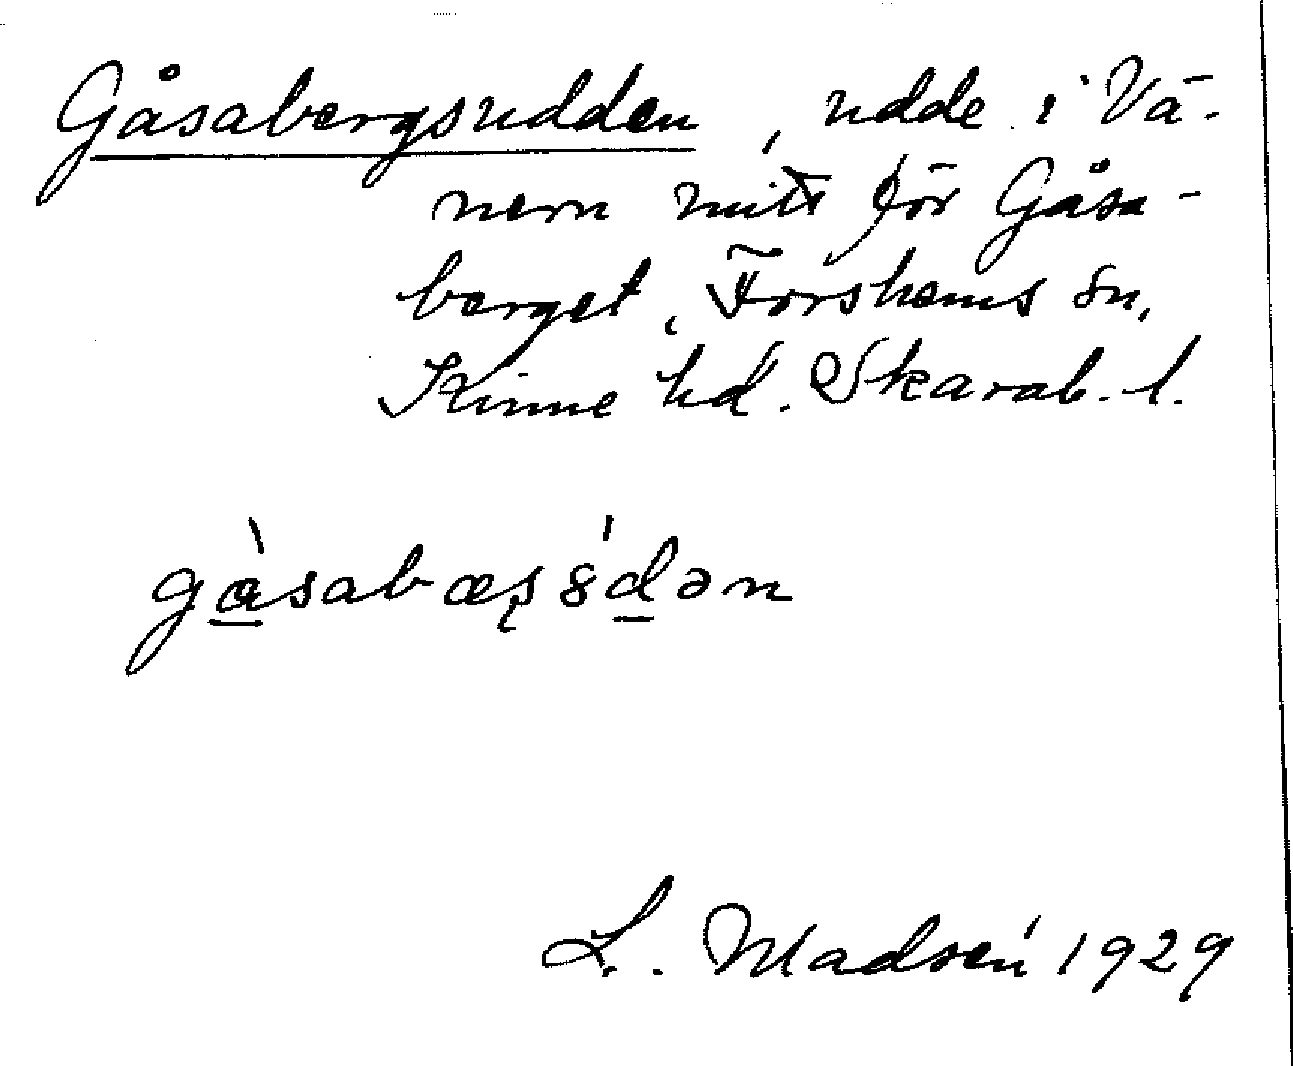 Gåsabergsudden, udde i Vä-
nern mitt för Gåsa-
berget, Forshems sn,
Kinne hd. Skarab. l.
gàsabæʂ8́dən
L. Madsén 1929